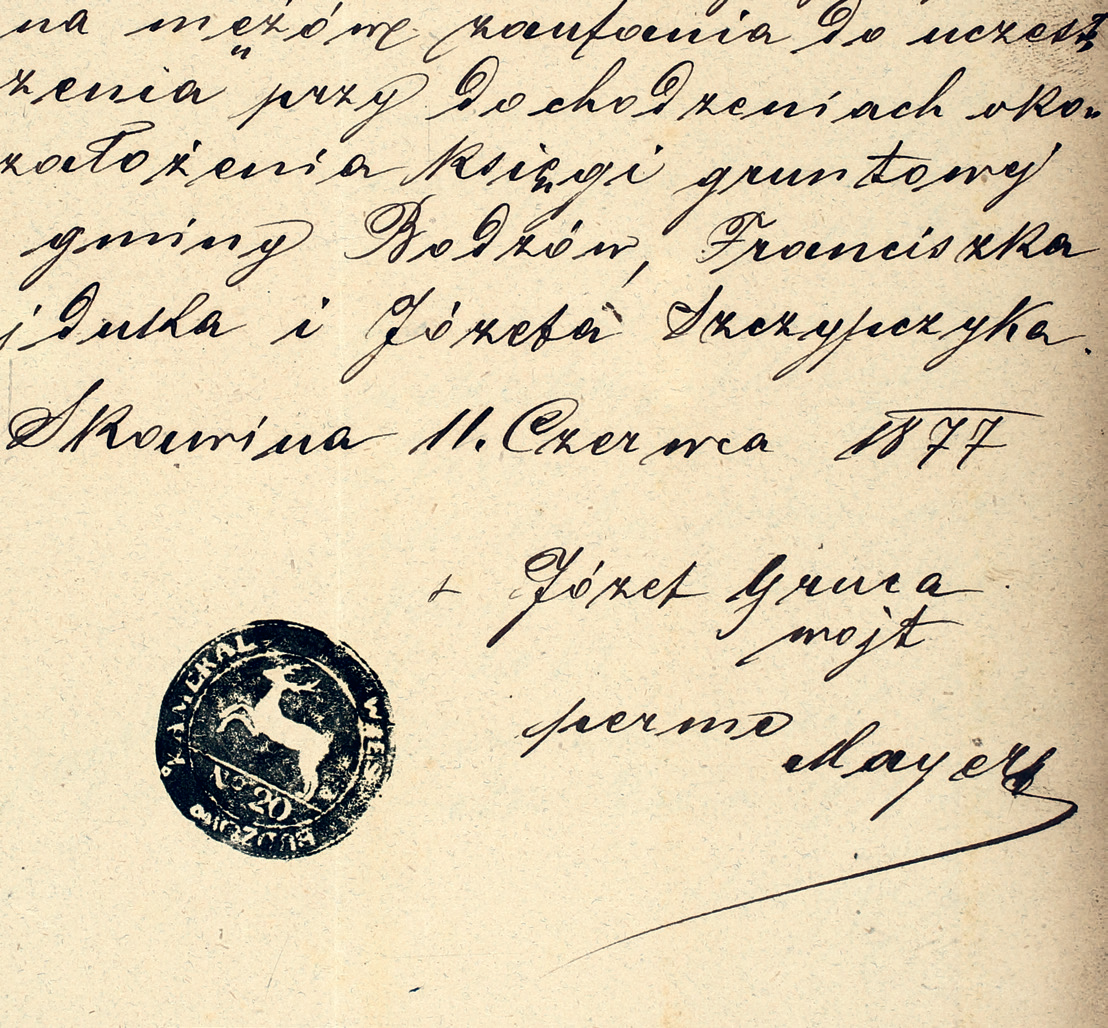 na mężów zaufania do uczest
zenia przy dochodzeniach oko„
założenia księgi gruntowej
gminy Bodzów, Franciszka
i Józefa Szczypczyka.
Skawina 11. Czerwca 1877
+ Józef Gruca
wojt
per me
Mayer
KAMERAL WIES
No 20
BODZOW